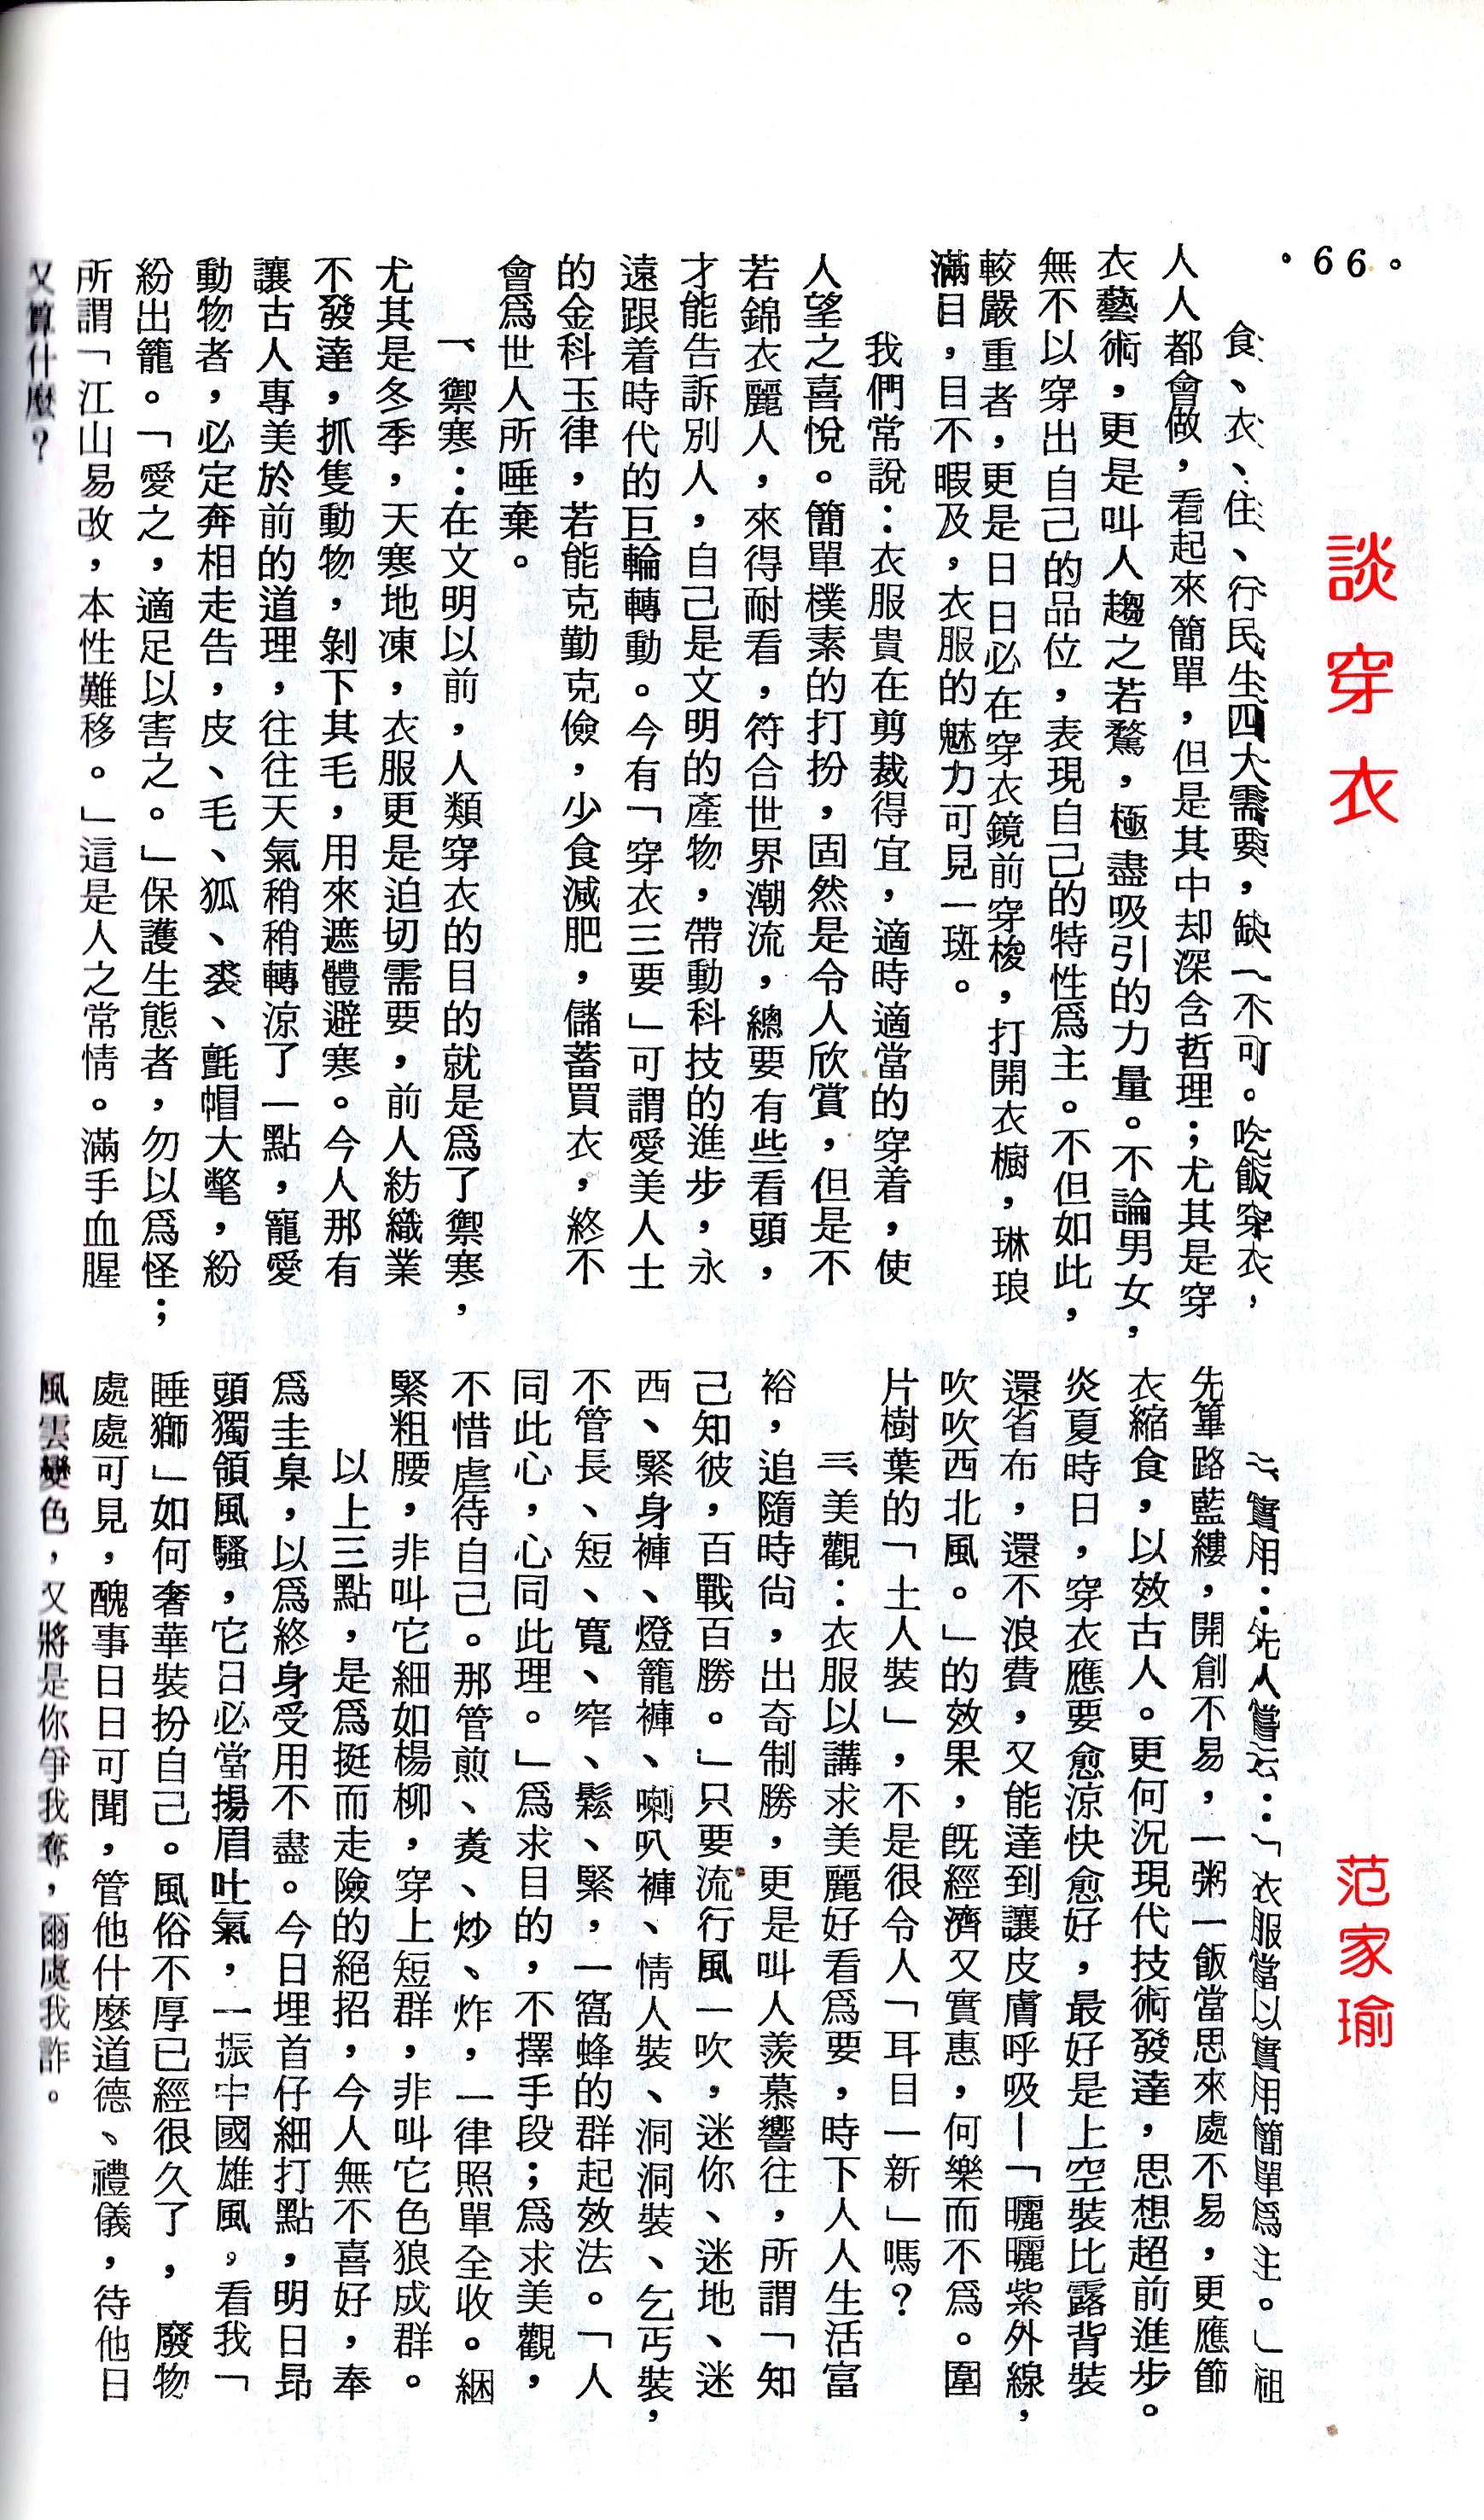 ·66。
談穿衣
范家瑜
食、衣、住、行民生四大需要，缺一不可。吃飯穿衣，
人人都會做，看起來簡單，但是其中却深含哲理；尤其是穿
衣藝術，更是叫人趨之若鶩，極盡吸引的力量。不論男女，
無不以穿出自己的品位，表現自己的特性爲主。不但如此，
較嚴重者，更是日日必在穿衣鏡前穿梭，打開衣櫥，琳琅
滿目，目不暇及，衣服的魅力可見一斑。
我們常說：衣服貴在剪裁得宜，適時適當的穿着，使
人望之喜悅。簡單樸素的打扮，固然是令人欣賞，但是不
若錦衣麗人，來得耐看，符合世界潮流，總要有些看頭，
才能告訴別人，自己是文明的產物，帶動科技的進步，永
遠跟着時代的巨輪轉動。今有「穿衣三要」可謂愛美人士
的金科玉律，若能克勤克儉，少食減肥，儲蓄買衣，終不
會爲世人所唾棄。
一、禦寒：在文明以前，人類穿衣的目的就是爲了禦寒，
尤其是冬季，天寒地凍，衣服更是迫切需要，前人紡織業
不發達，抓隻動物，剝下其毛，用來遮體避寒。今人那有
讓古人專美於前的道理，往往天氣稍稍轉涼了一點，寵愛
動物者，必定奔相走告，皮、毛、狐、裘、氈帽大氅，紛
紛出籠。「愛之，適足以害之。」保護生態者，勿以爲怪；
所謂「江山易改，本性難移。」這是人之常情。滿手血腥
又算什麼？
二、實用：先人嘗云：「衣服當以實用簡單爲主。」祖
先篳路藍縷，開創不易，一粥一飯當思來處不易，更應節
衣縮食，以效古人。更何況現代技術發達，思想超前進步。
炎夏時日，穿衣應要愈涼快愈好，最好是上空裝比露背裝
還省布，還不浪費，又能達到讓皮膚呼吸—「曬曬紫外線，
吹吹西北風。」的效果，旣經濟又實惠，何樂而不爲。圍
片樹葉的「土人裝」，不是很令人「耳目一新」嗎？
三、美觀：衣服以講求美麗好看爲要，時下人人生活富
裕，追隨時尙，出奇制勝，更是叫人羨慕響往，所謂「知
己知彼，百戰百勝。」只要流行風一吹，迷你、迷地、迷
西、緊身褲、燈籠褲、喇叭褲、情人裝、洞洞裝、乞丐裝，
不管長、短、寬、窄、鬆、緊，一窩蜂的群起效法。「人
同此心，心同此理。」爲求目的，不擇手段；爲求美觀，
不惜虐待自己。那管煎、煑、炒、炸，一律照單全收。綑
緊粗腰，非叫它細如楊柳，穿上短群，非叫它色狼成群。
以上三點，是爲挺而走險的絕招，今人無不喜好，奉
爲圭臬，以爲終身受用不盡。今日埋首仔細打點，明日昂
頭獨領風騷，它日必當揚眉吐氣，一振中國雄風，看我「
睡獅」如何奢華裝扮自己。風俗不厚已經很久了，廢物
處處可見，醜事日日可聞，管他什麼道德、禮儀，待他日
風雲變色，又將是你爭我奪，爾虞我詐。